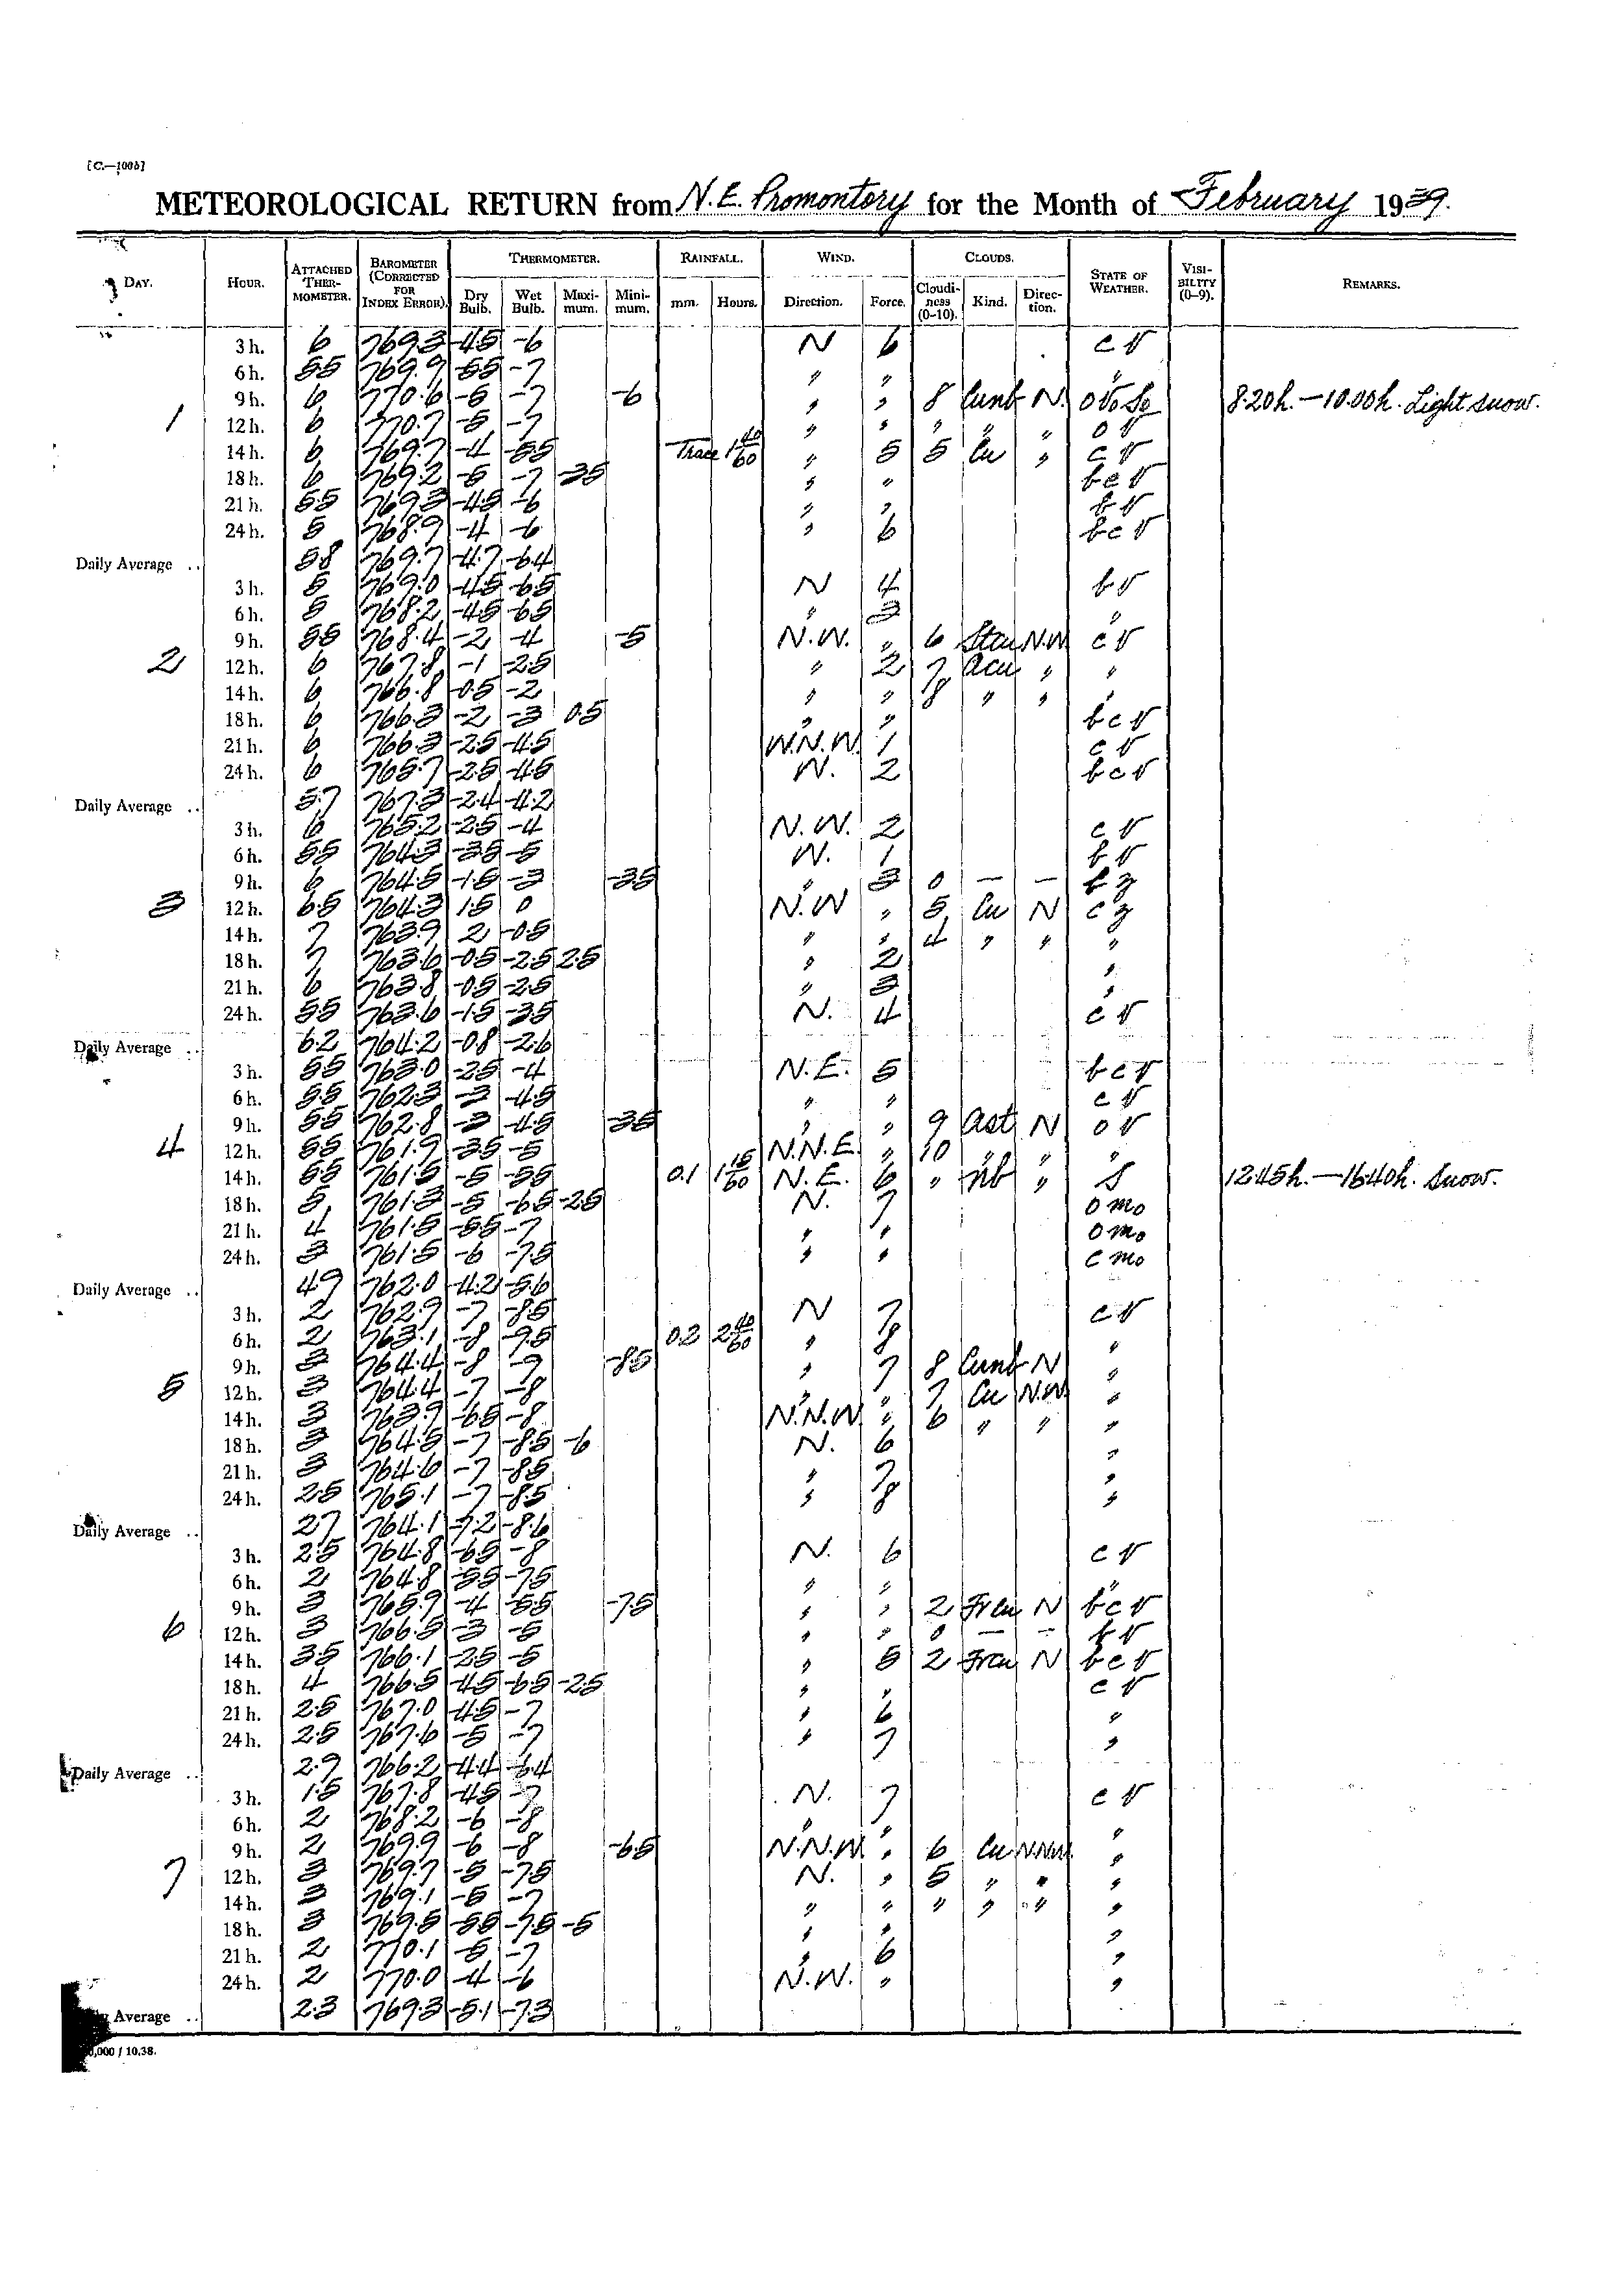 [C.—100b]
METEOROLOGICAL RETURN from N. E. Promontory for the Month of February 1939.
DAY. HOUR. ATTACHED THERMOMETER. BAROMETER (CORRECTED FOR INDEX ERROR). THERMOMETER. RAINFALL. WIND. CLOUDS. STATE OF WEATHER. VISIBILITY (0–9). REMARKS.
Dry Bulb. Wet Bulb. Maximum. Minimum. mm. Hours. Direction. Force. Cloudiness (0–10). Kind. Direction.
3 h. 6 769.3 -4.5 -6 N 6 c v
6 h. 5.5 769.9 -5.5 -7 " " "
9 h. 6 770.6 -5 -7 -6 " " 8 Cunb N. o v so 8.20h.—10.00h. Light snow.
1 12 h. 6 770.7 -5 -7 " " " " " o v
14 h. 6 769.7 -4 -5.5 Trace 1 40/60 " 5 5 Cu " c v
18 h. 6 769.2 -5 -7 -3.5 " " b c v
21 h. 5.5 769.3 -4.5 -6 " " b v
24 h. 5 768.9 -4 -6 " 6 b c v
Daily Average .. 5.8 769.7 -4.7 -6.4
3 h. 5 769.0 -4.5 -6.5 N 4 b v
6 h. 5 768.2 -4.5 -6.5 " 3 "
9 h. 5.5 768.4 -2 -4 -5 N.W. " 6 Stcu N.W c v
2 12 h. 6 767.8 -1 -2.5 " 2 7 Acu " "
14 h. 6 766.8 -0.5 -2 " " 8 " " "
18 h. 6 766.3 -2 -3 0.5 " " b c v
21 h. 6 766.3 -2.5 -4.5 W.N.W. 1 c v
24 h. 6 765.7 -2.5 -4.5 W. 2 b c v
Daily Average .. 5.7 767.3 -2.4 -4.2
3 h. 6 765.2 -2.5 -4 N.W. 2 c v
6 h. 5.5 764.3 -3.5 -5 W. 1 b v
9 h. 6 764.5 -1.5 -3 -3.5 " 3 0 — — b z
3 12 h. 6.5 764.3 1.5 0 N.W " 5 Cu N c z
14 h. 7 763.9 2 -0.5 " " 4 " " "
18 h. 7 763.6 -0.5 -2.5 2.5 " 2 "
21 h. 6 763.8 -0.5 -2.5 " 3 "
24 h. 5.5 763.6 -1.5 -3.5 N. 4 c v
Daily Average .. 6.2 764.2 -0.8 -2.6
3 h. 5.5 763.0 -2.5 -4 N.E. 5 b c v
6 h. 5.5 762.3 -3 -4.5 " " c v
9 h. 5.5 762.8 -3 -4.5 -3.5 " " 9 Ast N o v
4 12 h. 5.5 761.9 -3.5 -5 N.N.E. " 10 " " "
14 h. 5.5 761.5 -5 -5.5 0.1 1 15/60 N.E. 6 " Nb " s 12.45h.—16.40h. Snow.
18 h. 5 761.3 -5 -6.5 -2.5 N. 7 o mo
21 h. 4 761.5 -5.5 -7 " " o mo
24 h. 3 761.5 -6 -7.5 " " c mo
Daily Average .. 4.9 762.0 -4.2 -5.6
3 h. 2 762.9 -7 -8.5 N 7 c v
6 h. 2 763.1 -8 -9.5 0.2 2 40/60 " 8 "
9 h. 3 764.4 -8 -9 -8.5 " 7 8 Cunb N "
5 12 h. 3 764.4 -7 -8 " " 7 Cu N.W "
14 h. 3 763.9 -6.5 -8 N.N.W. " 6 " " "
18 h. 3 764.5 -7 -8.5 -6 N. 6 "
21 h. 3 764.6 -7 -8.5 " 7 "
24 h. 2.5 765.1 -7 -8.5 " 8 "
Daily Average .. 2.7 764.1 -7.2 -8.6
3 h. 2.5 764.8 -6.5 -8 N. 6 c v
6 h. 2 764.8 -5.5 -7.5 " " "
9 h. 3 765.9 -4 -5.5 -7.5 " " 2 Frcu N b c v
6 12 h. 3 766.5 -3 -5 " " 0 — — b v
14 h. 3.5 766.1 -2.5 -5 " 5 2 Frcu N b c v
18 h. 4 766.5 -4.5 -6.5 -2.5 " " c v
21 h. 2.5 767.0 -4.5 -7 " 6 "
24 h. 2.5 767.6 -5 -7 " 7 "
Daily Average .. 2.9 766.2 -4.4 -6.4
3 h. 1.5 767.8 -4.5 -7 N. 7 c v
6 h. 2 768.2 -6 -8 " " "
9 h. 2 769.9 -6 -8 -6.5 N.N.W " 6 Cu N.NW. "
7 12 h. 3 769.7 -5 -7.5 N. " 5 " " "
14 h. 3 769.1 -5 -7 " " " " " "
18 h. 3 769.5 -5.5 -7.5 -5 " " "
21 h. 2 770.1 -5 -7 " 6 "
24 h. 2 770.0 -4 -6 N.W. " "
Average .. 2.3 769.3 -5.1 -7.3
,000 / 10.38.